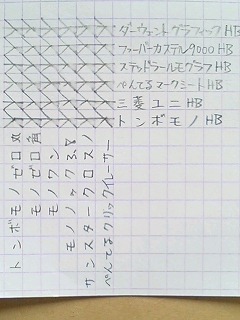 ダーウェントグラフィックHB
ファーバーカステル9000HB
ステッドラールモグラフHB
ぺんてるマークシートHB
三菱ユニHB
トンボモノHB
トンボモノゼロ丸
モノゼロ角
モノワン
モノノック3.8
サンスタークロスノ
ぺんてるクリックイレーサー